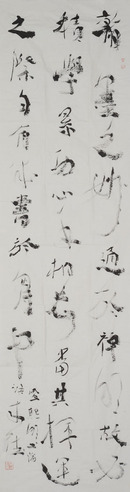 翰墨之妙通於神明故必
積學累功心手相忘當其揮運
之際自有成書於胸中